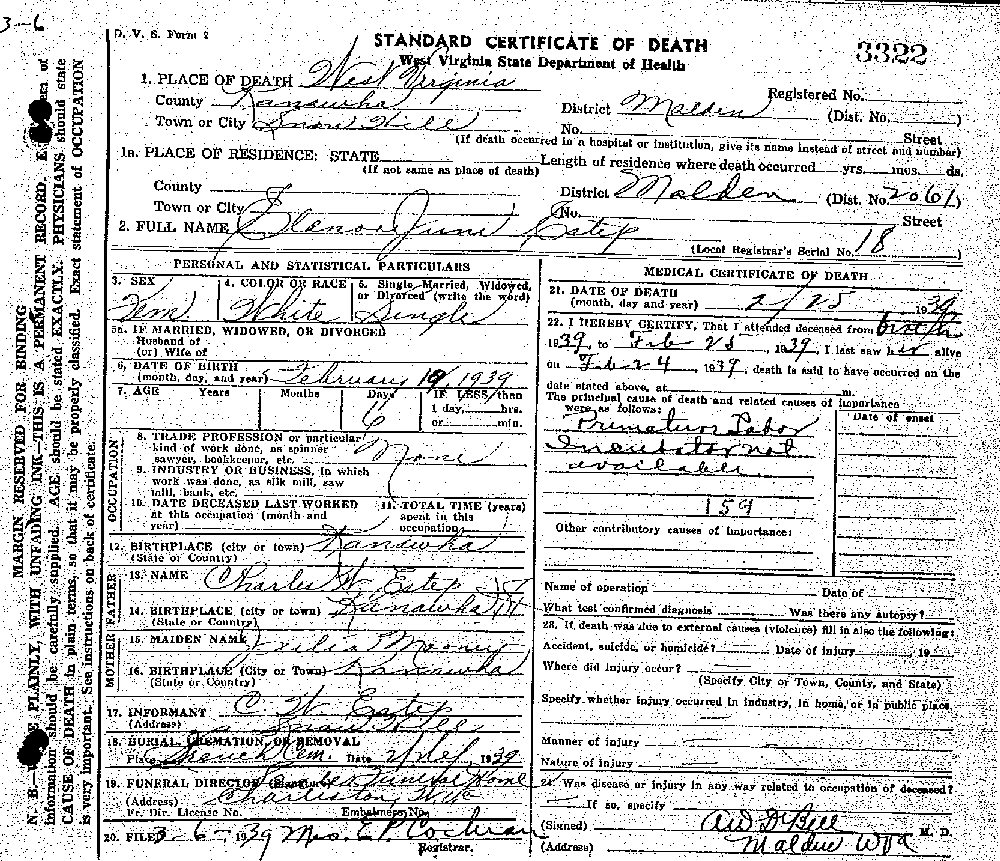 3-6
D. V. S. Form 2
STANDARD CERTIFICATE OF DEATH
West Virginia State Department of Health
3322
1. PLACE OF DEATH West Virginia
County Kanawha
Town or City Snow Hill
District Malden
Registered No.
(Dist. No. )
No. Street
(If death occurred in a hospital or institution, give its name instead of street and number)
1a. PLACE OF RESIDENCE: STATE
(If not same as place of death)
Length of residence where death occurred yrs. mos. ds.
County
Town or City
District Malden (Dist. No. 2061)
No. Street
2. FULL NAME Elenor June Estep
(Local Registrar's Serial No. 18
PERSONAL AND STATISTICAL PARTICULARS
3. SEX Fem
4. COLOR OR RACE White
5. Single, Married, Widowed, or Divorced (write the word) Single
5a. IF MARRIED, WIDOWED, OR DIVORCED
Husband of
(or) Wife of
6. DATE OF BIRTH
(month, day, and year) February 19, 1939
7. AGE Years Months Days 6 IF LESS than
1 day, hrs.
or min.
OCCUPATION
8. TRADE PROFESSION or particular
kind of work done, as spinner
sawyer, bookkeeper, etc. None
9. INDUSTRY OR BUSINESS, in which
work was done, as silk mill, saw
mill, bank, etc.
10. DATE DECEASED LAST WORKED
at this occupation (month and
year)
11. TOTAL TIME (years)
spent in this
occupation
12. BIRTHPLACE (city or town) Kanawha
(State or Country)
FATHER
13. NAME Charles W Estep
14. BIRTHPLACE (city or town) Kanawha
(State or Country)
MOTHER
15. MAIDEN NAME Mooney
16. BIRTHPLACE (City or Town) Kanawha
(State or Country)
17. INFORMANT C. W. Estep
(Address) Snow Hill
18. BURIAL, CREMATION, OR REMOVAL
Place Cem. Date 1939
19. FUNERAL DIRECTOR Funeral Home
(Address) Charleston, W Va
Fr. Dir. License No. Embalmers No.
20. FILED 3-6-1939 Mrs. E. P. Cochran
Registrar.
MEDICAL CERTIFICATE OF DEATH
21. DATE OF DEATH
(month, day and year) 2/25 1939
22. I HEREBY CERTIFY, That I attended deceased from birth
1939, to Feb 25, 1939, I last saw her alive
on Feb 24, 1939, death is said to have occurred on the
date stated above, at m.
The principal cause of death and related causes of importance
were as follows:
Date of onset
Premature Labor
Incubator not
available
159
Other contributory causes of importance:
Name of operation Date of
What test confirmed diagnosis Was there any autopsy?
23. If death was due to external causes (violence) fill in also the following:
Accident, suicide, or homicide? Date of injury 19
Where did injury occur?
(Specify City or Town, County, and State)
Specify whether injury occurred in industry, in home, or in public place.
Manner of injury
Nature of injury
24. Was disease or injury in any way related to occupation of deceased?
If so, specify
(Signed) M. D.
(Address) Malden W Va
MARGIN RESERVED FOR BINDING
PLAINLY, WITH UNFADING INK—THIS IS A PERMANENT RECORD.
information should be carefully supplied. AGE should be stated EXACTLY. PHYSICIANS should state
CAUSE OF DEATH in plain terms, so that it may be properly classified. Exact statement of OCCUPATION
is very important. See instructions on back of certificate.